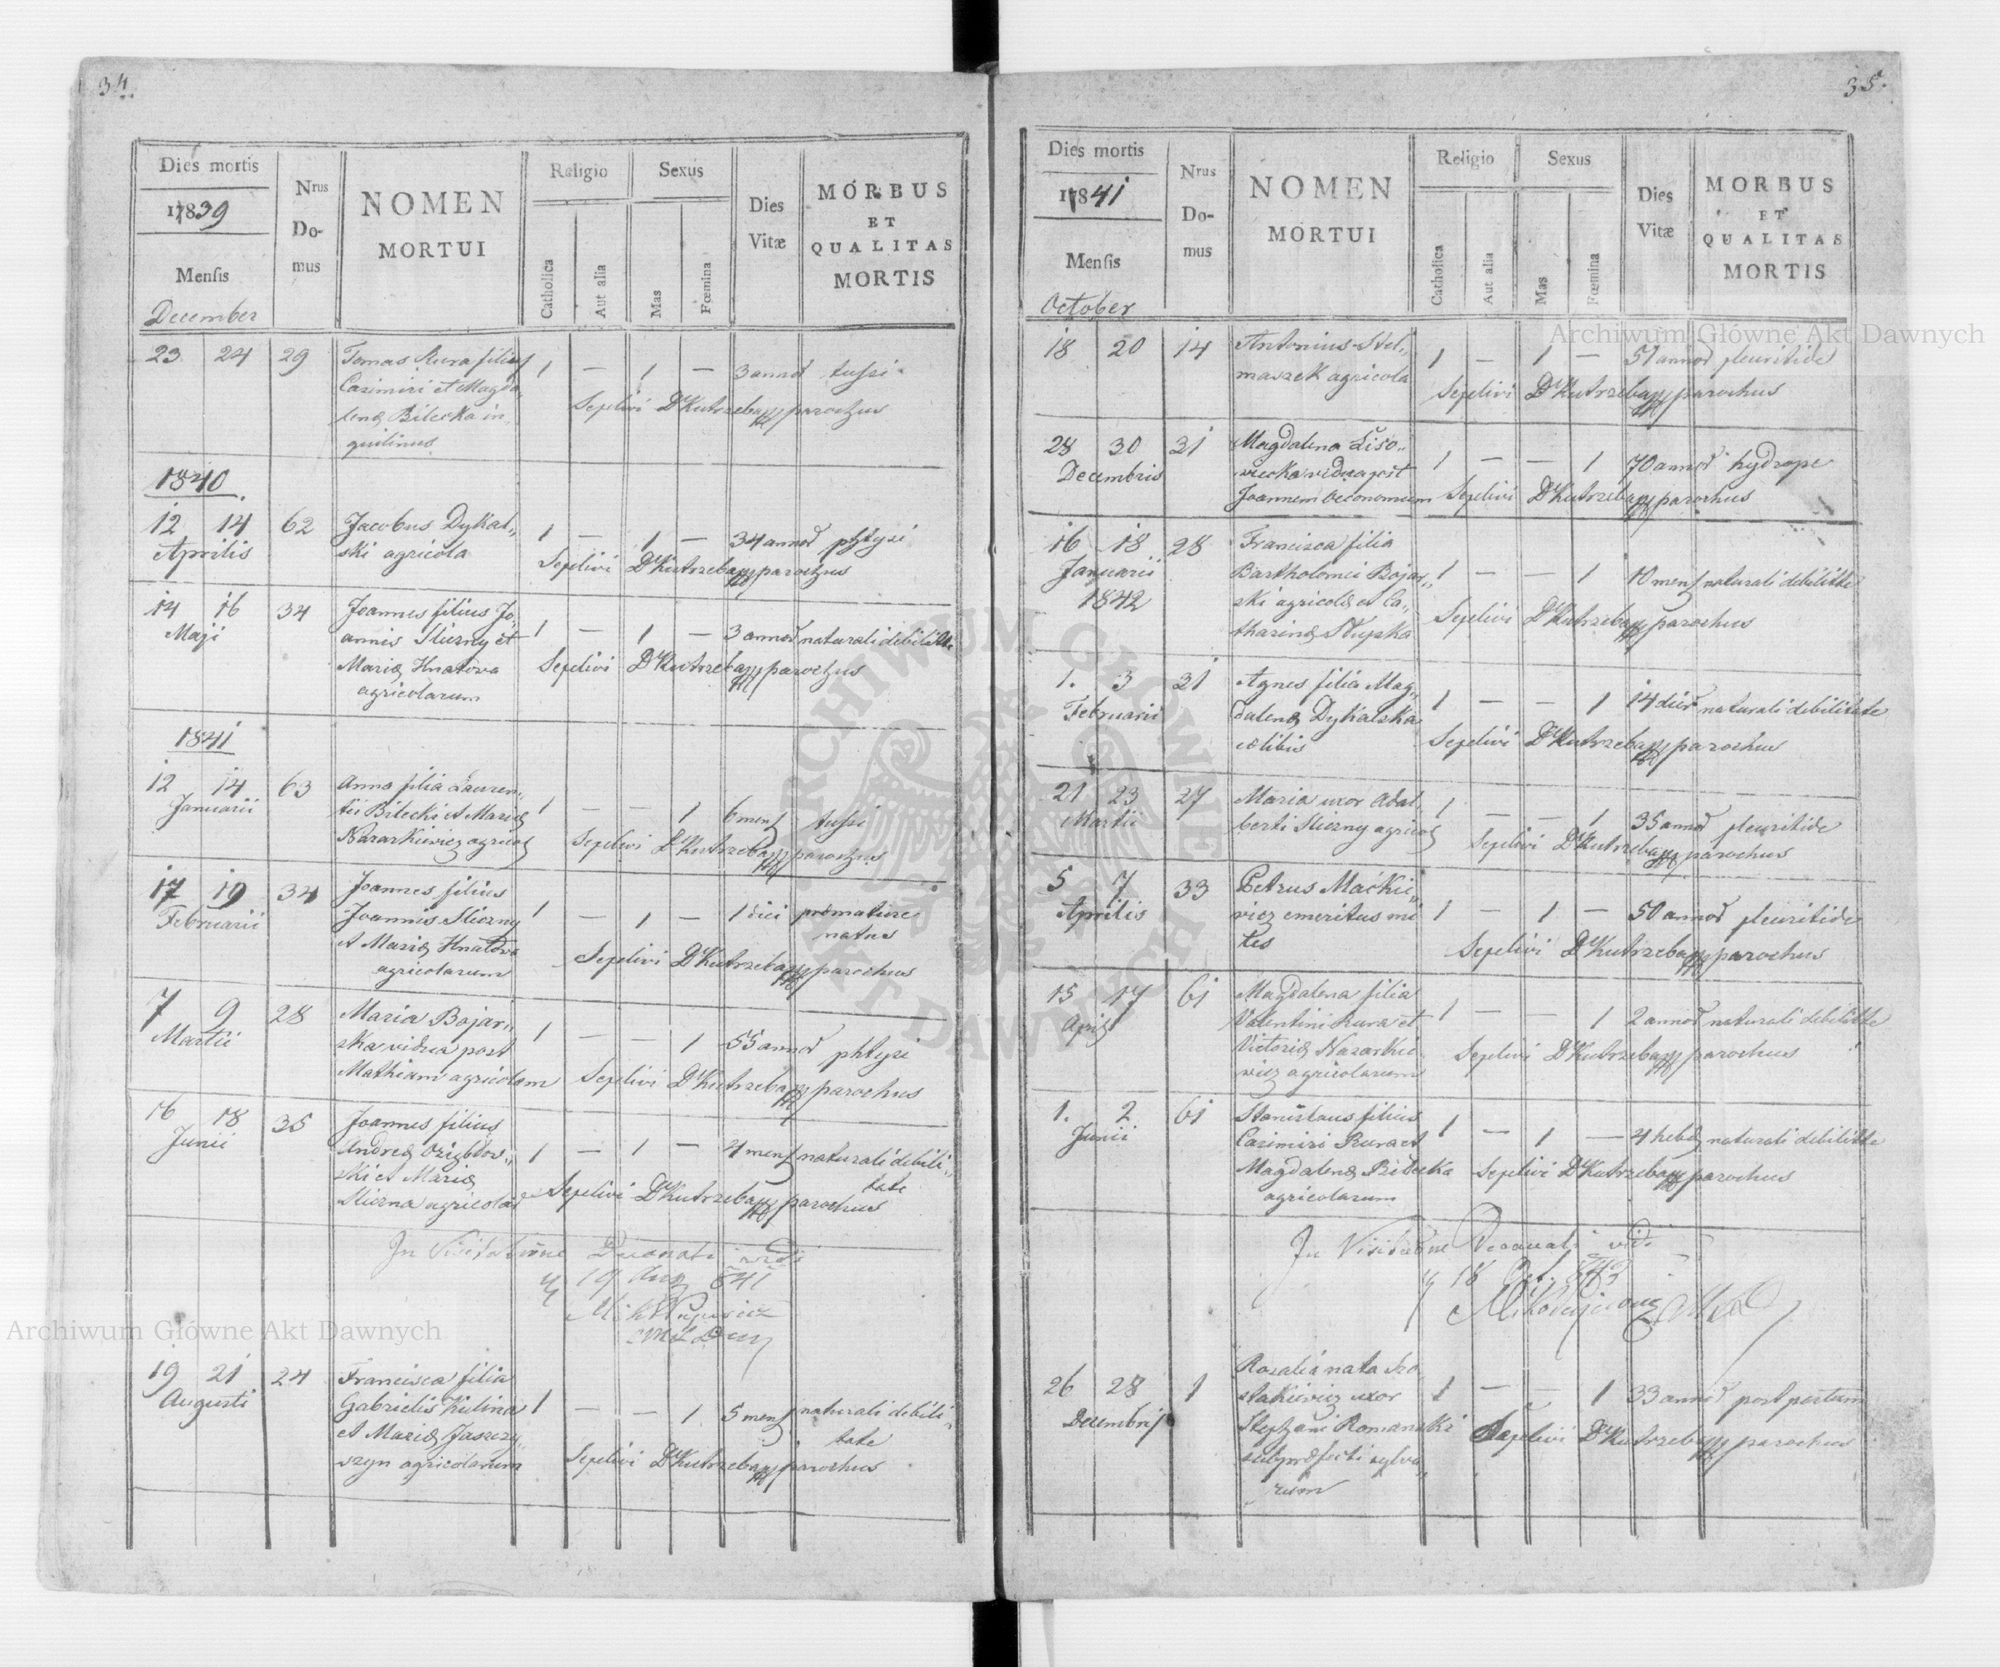 34.
Dies mortis
1839
Mensis
December
Nrus Domus
NOMEN
MORTUI
Religio
Catholica
Aut alia
Sexus
Mas
Fœmina
Dies
Vitæ
MORBUS
ET
QUALITAS
MORTIS
23 24 29 Tomas Rura filius 1 — 1 — 3 annor tussi
Casimiri et Magda-
lenæ Bilecka in-
quilinus
Sepelivi Dr Kutrzeba parochus
1840
12 14 62 Jacobus Dykal-
Aprilis
ski agricola
1 — 1 — 34 annor phtysi
Sepelivi Dr Kutrzeba parochus
14 16 34 Joannes filius Jo-
Maji
annis Sliczny et
Mariæ Hnatowa
agricolarum
1 — 1 — 3 annor naturali debilitte
Sepelivi Dr Kutrzeba parochus
1841
12 14 63 Anna filia Lauren-
Januarii
tii Bilecki et Mariæ
Nazarkiewicz agricol
1 — — 1 6 mens tussi
Sepelivi Dr Kutrzeba parochus
17 19 34 Joannes filius
Februarii
Joannis Sliczny
et Mariæ Hnatowa
agricolarum
1 — 1 — 1 diei præmature
natus
Sepelivi Dr Kutrzeba parochus
7 9 28 Maria Bojar-
Martii
ska vidua post
Mathiam agricolam
1 — — 1 55 annor phtysi
Sepelivi Dr Kutrzeba parochus
16 18 35 Joannes filius
Junii
Andreæ
ski et Mariæ
Sliczna agricolar
1 — 1 — 4 mens naturali debili-
tate
Sepelivi Dr Kutrzeba parochus
In Visitatione Decanali vidi
19 Aug 841
19 21 24 Francisca filia
Augusti
Gabrielis Kulina
et Mariæ Jaszczy-
szyn agricolarum
1 — — 1 5 mens naturali debili-
tate
Sepelivi Dr Kutrzeba parochus
35.
Dies mortis
1841
Mensis
October
Nrus Domus
NOMEN
MORTUI
Religio
Catholica
Aut alia
Sexus
Mas
Fœmina
Dies
Vitæ
MORBUS
ET
QUALITAS
MORTIS
18 20 14 Antonius Stel-
maszek agricola
1 — 1 — 51 annor pleuritide
Sepelivi Dr Kutrzeba parochus
28 30 31 Magdalena Liso-
Decembris
wiecka vidua post
Joannem oeconomum
1 — — 1 70 annor hydrope
Sepelivi Dr Kutrzeba parochus
16 18 28 Francisca filia
Januarii
1842
Bartholomei Bojar-
ski agricolæ et Ca-
tharinæ Słupska
1 — — 1 10 mens naturali debilitte
Sepelivi Dr Kutrzeba parochus
1. 3 31 Agnes filia Mag-
Februarii
dalenæ Dykalska
cælibis
1 — — 1 14 dier naturali debilitate
Sepelivi Dr Kutrzeba parochus
21 23 27 Maria uxor Adal-
Martii
berti Sliczny agricol
1 — — 1 35 annor pleuritide
Sepelivi Dr Kutrzeba parochus
5 7 33 Petrus Maćkie-
Aprilis
wicz emeritus mi
les
1 — 1 — 50 annor pleuritide
Sepelivi Dr Kutrzeba parochus
15 17 61 Magdalena filia
April
Valentini Rura et
Victoriæ Nazarkie
wicz agricolarum
1 — — 1 2 annor naturali debilitte
Sepelivi Dr Kutrzeba parochus
1. 2 61 Stanislaus filius
Junii
Casimiri Rura et
Magdalenæ Bilecka
agricolarum
1 — 1 — 4 hebd naturali debilitte
Sepelivi Dr Kutrzeba parochus
In Visitatione Decanali vidi
18 Oct. 843
26 28 1 Rosalia nata Szo-
Decembris
stakiewicz uxor
Stephani Romanski
subpræfecti sylva-
rum
1 — — 1 33 annor post partum
Sepelivi Dr Kutrzeba parochus
Archiwum Główne Akt Dawnych
Archiwum Główne Akt Dawnych
ARCHIWUM GŁÓWNE AKT DAWNYCH